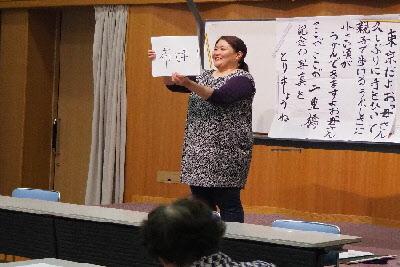 東京だよお母さん
久しぶりに手をひいて
親子で歩けるうれしさに
小さい頃が
うかんできますよお母さん
ここがここが二重橋
記念の写真を
とりましょうね